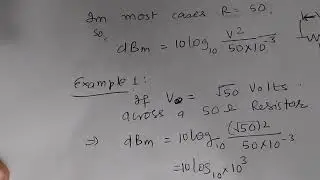 In most cases R = 50.
so,
dBm = 10 log₁₀ V² / 50×10⁻³
Example 1:
If V = √50 Volts.
across a 50 Ω Resistor
⇒ dBm = 10 log₁₀ (√50)² / 50×10⁻³
= 10 log₁₀ ×10³